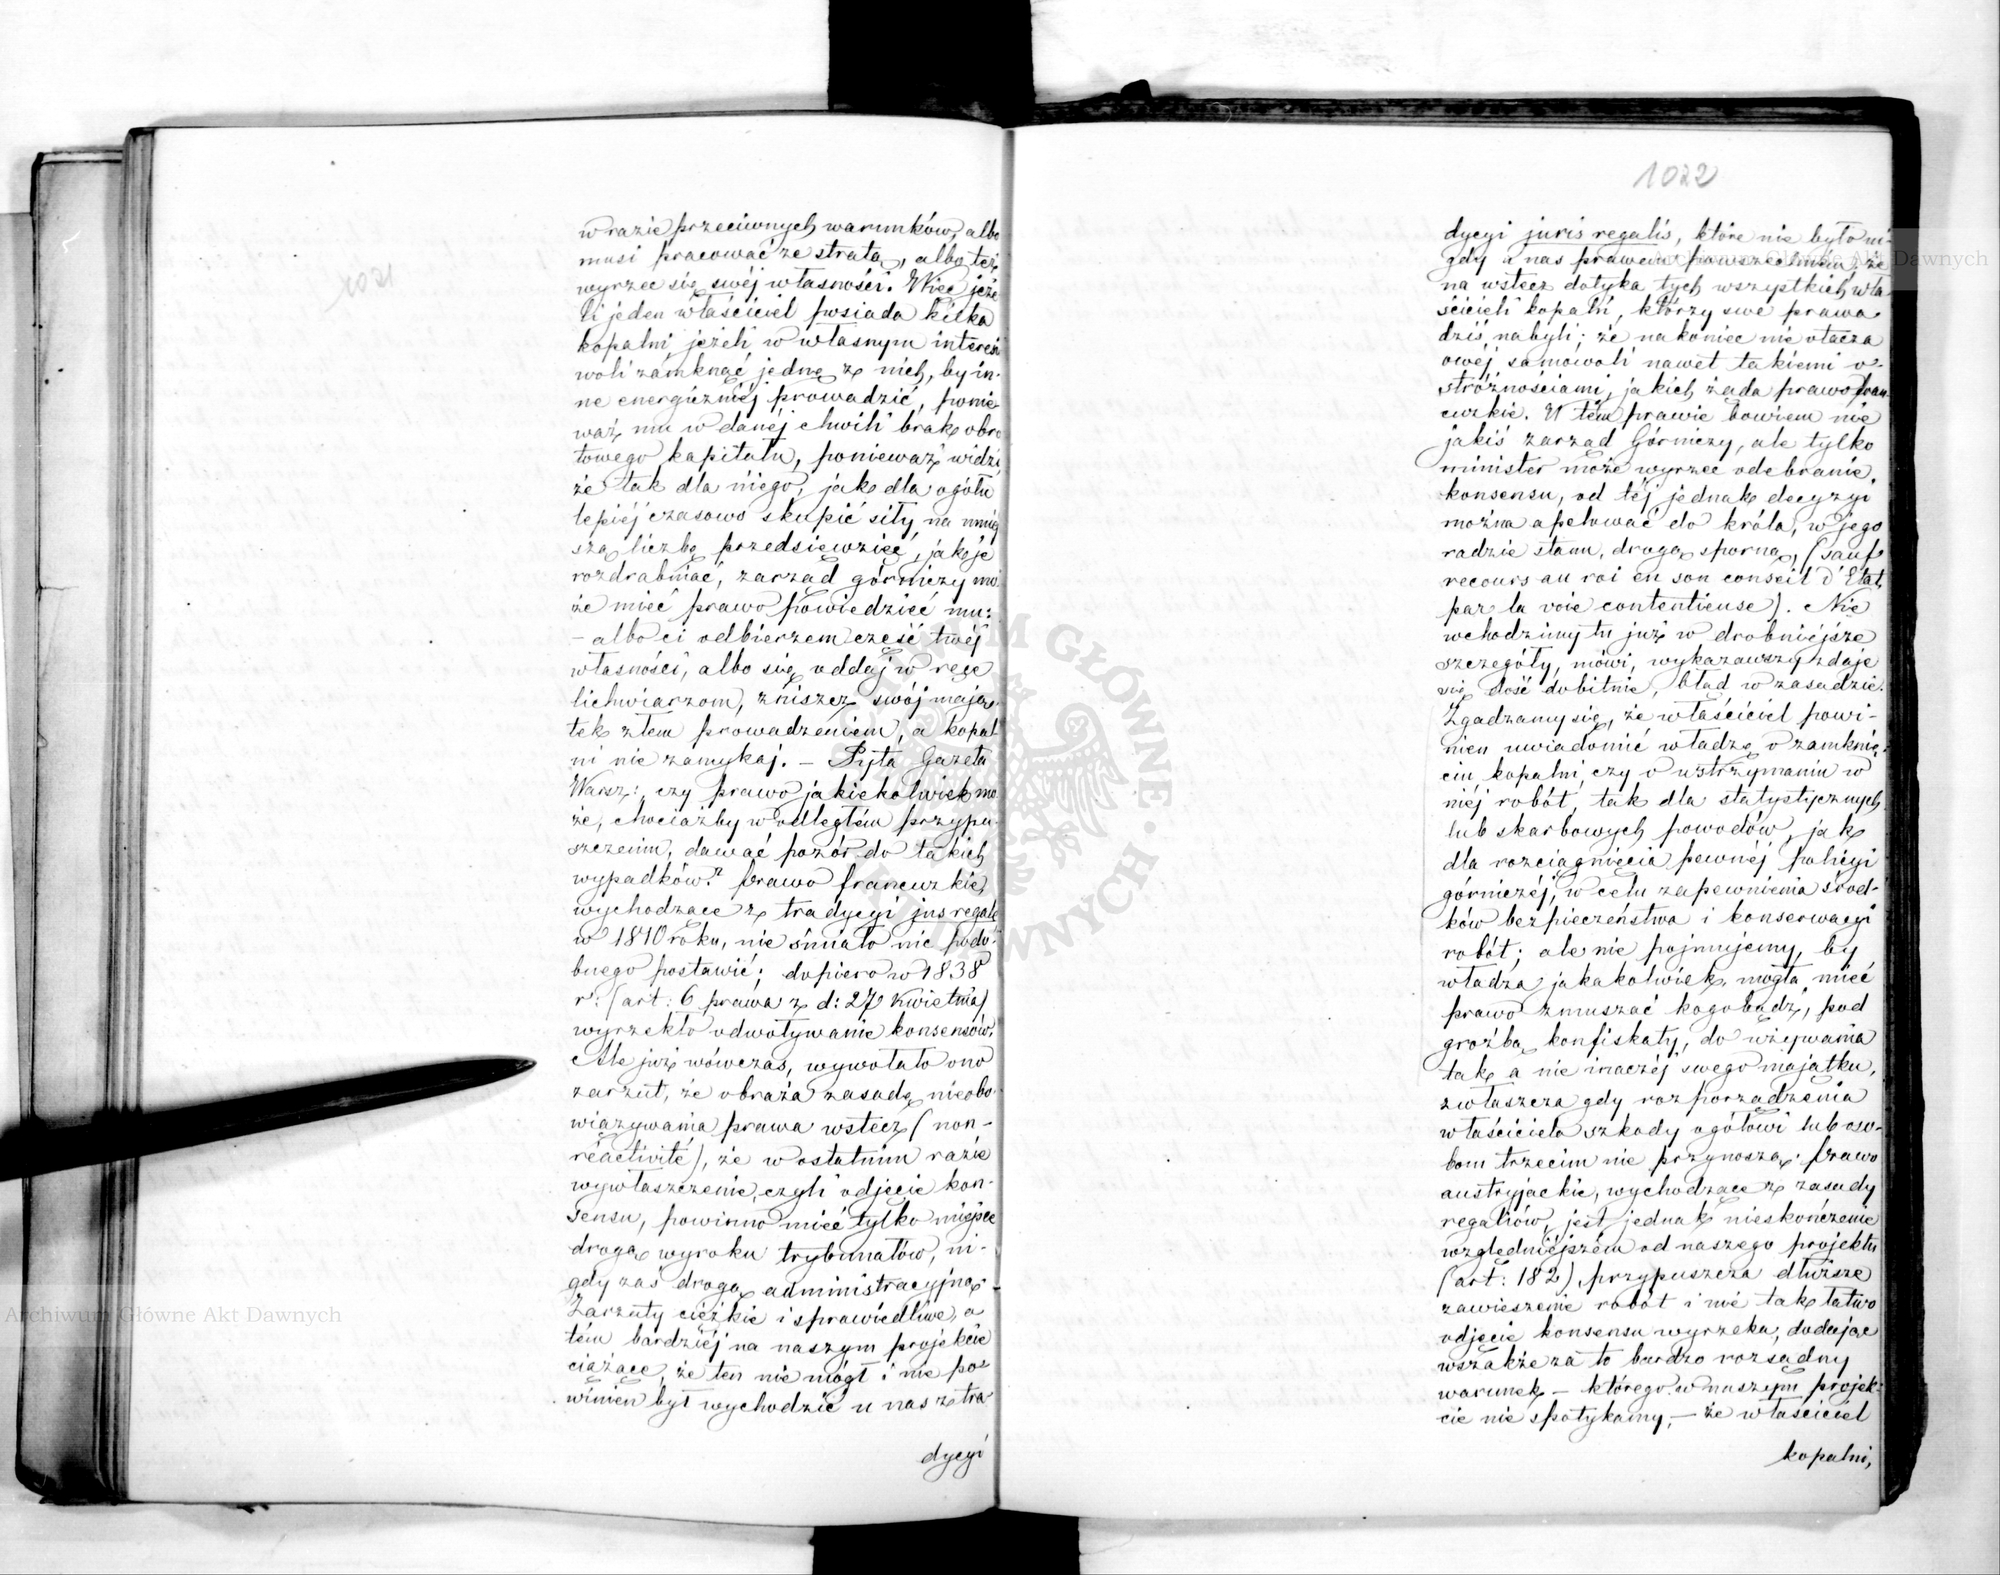 1021
w razie przeciwnych warunków, albo
musi pracować ze stratą, albo też
wyrzec się swéj własności. Więc jeże
li jeden właściciel posiada kilka
kopalni jeżeli w własnym interesie
woli zamknąć jednę z nich, by in-
ne energiczniéj prowadzić, ponie
waż mu w danéj chwili brak obro
towego kapitału, ponieważ widzi,
że tak dla niego, jak dla ogółu
lepiéj czasowo skupić siły na mniej
szą liczbę przedsięwzięć, jak je
rozdrabniać, zarząd górniczy mo
że mieć prawo powiedzieć mu:
– albo ci odbierzem część twéj
własności, albo się oddaj w ręce
lichwiarzom, zniszcz swój mają-
tek złem prowadzeniem, a kopal
ni nie zamykaj. – Pyta Gazeta
Warsz: czy prawo jakiekolwiek mo
że, chociażby w odległém przypu-
szczeniu, dawać pozór do takich
wypadków? Prawo francuzkie,
wychodzące z tradycyi jus regale
w 1810 roku, nie śmiało nic podo-
bnego postawić; dopiero w 1838
r: (art: 6 prawa z d: 27 Kwietnia)
wyrzekło odwoływanie konsensów.
Ale już wówczas, wywołało ono
zarzut, że obraża zasadę nieobo-
wiązywania prawa wstecz (non-
réactivité), że w ostatnim razie
wywłaszczenie, czyli odjęcie kon-
sensu, powinno mieć tylko miejsce
drogą wyroku trybunałów, ni-
gdy zaś drogą administracyjną. –
Zarzuty ciężkie i sprawiedliwe, a
tém bardziéj na naszym projekcie
ciążące, że ten nie mógł i nie po-
winien był wychodzić u nas z tra
dycyi
1022
dycyi juris regalis, które nie było ni-
gdy u nas prawem powszechném; że
na wstecz dotyka tych wszystkich wła
ścicieli kopalń, którzy swe prawa
dziś nabyli; że na koniec nie otacza
owéj samowoli nawet takiemi o-
stróżnościami, jakich żąda prawo fran
cuzkie. W tém prawie bowiem nie
jakiś zarząd Górniczy, ale tylko
minister może wyrzec odebranie
konsensu, od téj jednak decyzyi
można apelować do króla, w jego
radzie stanu, drogą sporną, (sauf
recours au roi en son conseil d'Etat,
par la voie contentieuse). Nie
wchodzimy tu już w drobniejsze
szczegóły, mówi, wykazawszy zdaje
się dość dobitnie, błąd w zasadzie.
Zgadzamy się, że właściciel powi-
nien uwiadomić władzę o zamknię-
ciu kopalni, czy o wstrzymaniu w
niéj robót, tak dla statystycznych
lub skarbowych powodów, jak
dla rozciągnięcia pewnéj policyi
górniczéj, w celu zapewnienia środ-
ków bezpieczeństwa i konserwacyi
robót; ale nie pojmujemy, by
władza jakakolwiek, mogła mieć
prawo zmuszać kogobądź, pod
groźbą konfiskaty, do używania
tak a nie inaczéj swego majątku,
zwłaszcza gdy rozporządzenia
właściciela szkody ogółowi lub oso-
bom trzecim nie przynoszą. Prawo
austryjackie, wychodzące z zasady
regaliów, jest jednak nieskończenie
względniejszém od naszego projektu
(art: 182), przypuszcza dłuższe
zawieszenie robót i nie tak łatwo
odjęcie konsensu wyrzeka, dodając
wszakże za to bardzo rozsądny
warunek – którego w naszym projek-
cie nie spotykamy, – że właściciel
kopalni,
Archiwum Główne Akt Dawnych
Archiwum Główne Akt Dawnych
ARCHIWUM GŁÓWNE AKT DAWNYCH